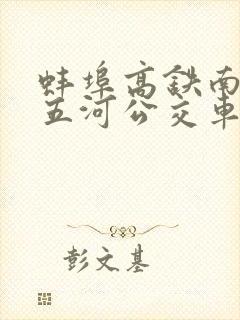 蚌埠高铁南
五河公交车
彭文基